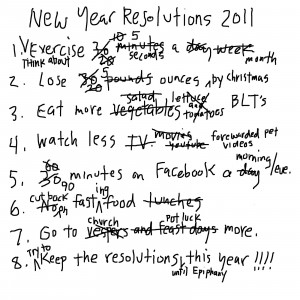 New Year Resolutions 2011
10 5
1. Exercise 30 minutes a day week
seconds month
Think about
2. Lose 30 20 5 pounds ounces by christmas
salad lettuce and
3. Eat more vegetables tomatoes BLT's
movies forewarded pet
4. Watch less T.V. youtube videos
60 morning
5. 30 90 minutes on Facebook a day/eve.
cut back ing
6. No on fast food lunches
church potluck
7. Go to vespers and feast days more.
Try to
8. Keep the resolutions, this year!!!!
until Epiphany